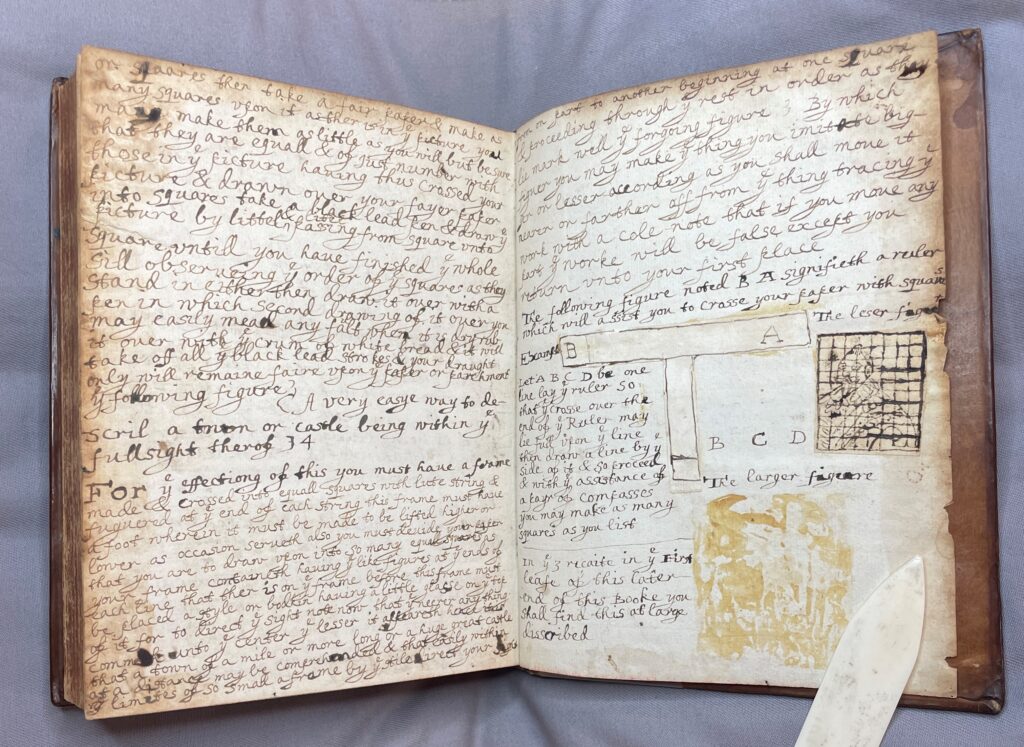 on squares then take a fair paper & make as
many squares vpon it as ther is in yᵉ picture you
may make them as little as you will but be sure
that they are equall & of Just number with
those in yᵉ picture having thus crossed your
picture & drawn over your fayer paper
into squares take a black lead pen & draw yᵉ
picture by little & little passing from square vnto
square vntill you have finished yᵉ whole
still observeing yᵉ order of yᵉ squares as they
stand in either then draw it over with a
pen in which second drawing of it over you
may easily mead any falt when it is dry rub
it over with yᵉ crum of white bread & it will
take off all yᵉ black lead strokes & your draught
only will remaine faire vpon yᵉ paper or parchment
yᵉ following figure
A very easye way to de-
scrib a town or castle being within yᵉ
full sight therof 34
For yᵉ effectiong of this you must have a frame
made & crossed into equall squares with lute string &
figuered at yᵉ end of each string this frame must have
a foot wherein it must be made to be lifted higher or
lower as occasion serveth also you must devide your paper
that you are to draw vpon into so many equal squares as
your frame containeth having yᵉ like figures at yᵉ ends of
each line that ther is on yᵉ frame before this frame must
be placed a style or bodkin having a little glasse on yᵉ top
of it for to direct yᵉ sight note now that yᵉ neerer any thing
commeth unto yᵉ center yᵉ lesser it
that a town of a mile or more long or a huge great castle
at a distance may be comprehended & that easily within
yᵉ limites of so small a frame by yᵉ stile direct your
from on part to another beginning at one square
& proceeding through yᵉ rest in order as they
but mark well yᵉ forgoing figure 3 By which
figuer you may make yᵉ thing you imitate big-
ger or lesser according as you shall move it
neven or farther off from yᵉ thing tracing yᵉ
work with a cole note that if you move any
part yᵉ worke will be false except you
return vnto your first place
The following figure noted B A signifieth a ruler
which will assist you to Crosse your paper with squares
The leser figure
Example
B A
Let A B C D be one
line lay yᵉ ruler so
that yᵉ crosse over the
end of yᵉ Ruler may
lie full vpon yᵉ line
then draw a line by yᵉ
side of it & so proceed
& with yᵉ assistance of
a payr of Compasses
you may make as many
squares as you list
B C D
The larger figuere
In yᵉ 3 ricaite in yᵉ First
leafe of this later
end of this Booke you
shall find this at large
discribed